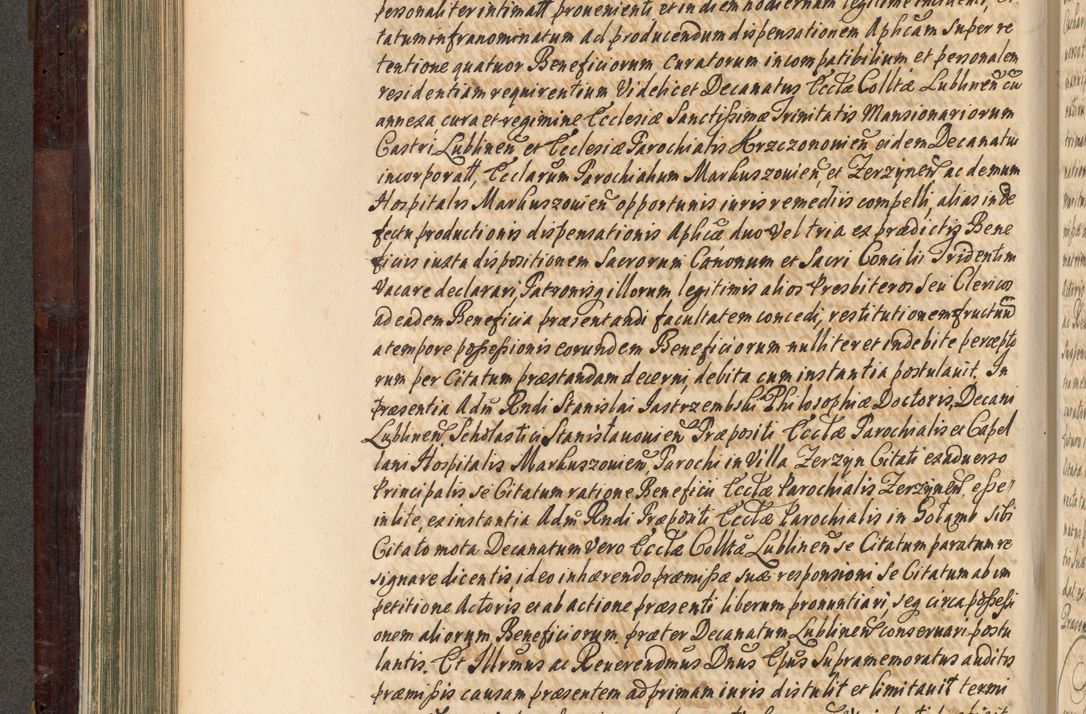 personaliter intimatt provenienti et in diem hodiernam legitime
tatum infranominatum ad producendum dispensationem Aplicam super re
tentione quatuor Beneficiorum curatorum incompatibilium et personalem
residentiam requirentium Videlicet Decanatus Ecclæ Colltæ Lublineñ cũ
annexa cura et regimine Ecclesiæ Sanctissimæ Trinitatis Mansionariorum
Castri Lublineñ et Ecclesiæ Parochialis Krzczonovieñ eidem Decanatui
incorporatt, Ecclarum Parochialium Markuszovieñ, et Zerzyneñ ac demum
Hospitalis Markuszovieñ opportunis iuris remediis compelli, alias in de
fectu productionis dispensationis Aplicæ duo vel tria ex prædictis Bene
ficiis iuxta dispositionem Sacrorum Canonum et Sacri Concilii Tridentini
Vacare declarari, Patronisq illorum legitimis alios Presbiteros seu Clericos
ad eadem Beneficia præsentandi facultatem concedi, restitutionem fructuũ
a tempore possessionis eorundem Beneficiorum nulliter et indebite percepto
rum per Citatum præstandam decerni debita cum instantia postulavit. In
Præsentia Adm̃ Rndi Stanislai Jastrzembski Philosophiæ Doctoris, Decani
Lublineñ, Scholastici Stanislavovieñ Præpositi Ecclæ Parochialis et Capel
lani Hospitalis Markuszovieñ, Parochi in Villa Zerzyn Citati ex adverso
Principalis se Citatum ratione Beneficii Ecclæ Parochialis Zerzyneñ, esse
in lite, ex instantia Adm̃ Rndi Præpositi Ecclæ Parochialis in Gołąmb sibi
Citato mota. Decanatum vero Ecclæ Colltæ Lublineñ se Citatum paratum re
signare dicentis ideo inhærendo præmissæ suæ responsioni se Citatum ab im
petitione Actoris et ab actione præsenti liberum pronuntiari, seq circa possessi
onem aliorum Beneficiorum præter Decanatum Lublineñ conservari postu
lantis. Et Illrmus ac Reverendmus Dnus Epus supramemoratus auditis
præmissis causam præsentem ad primam iuris distulit et limitavit termi